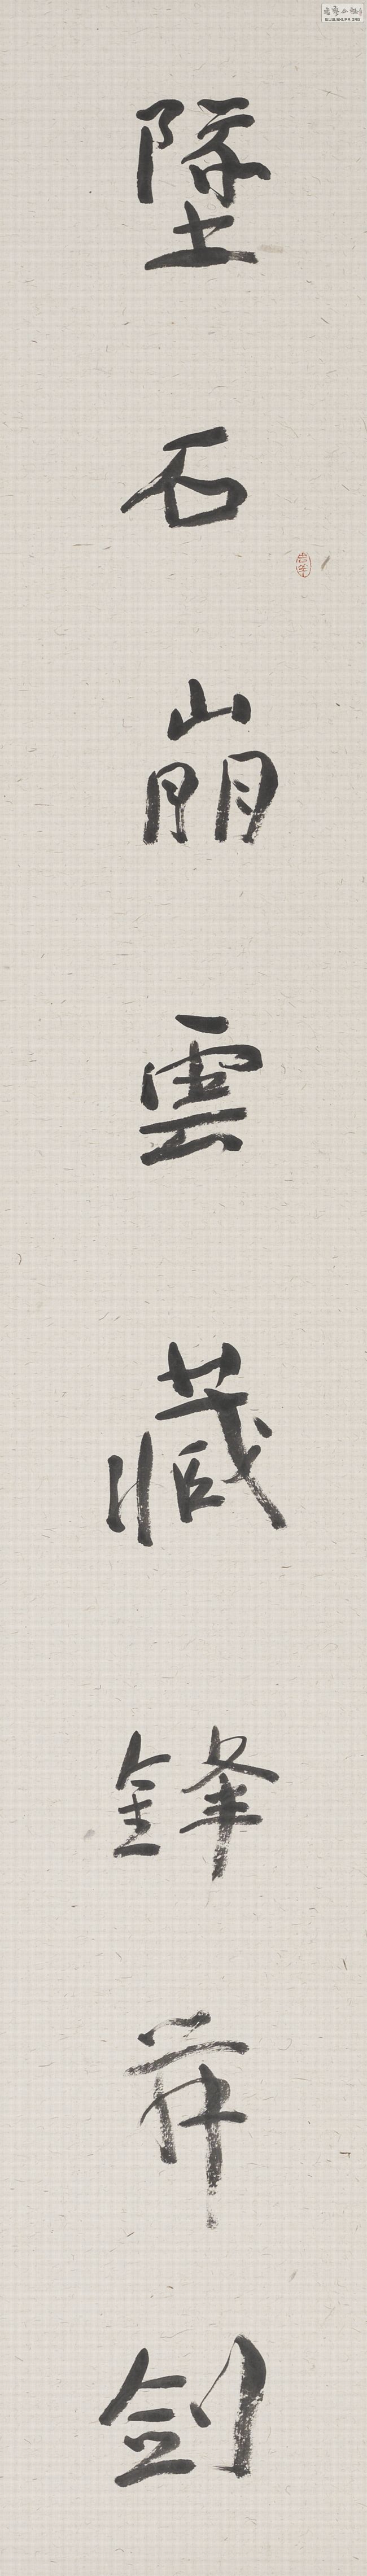 墜石崩雲藏鋒舞剑